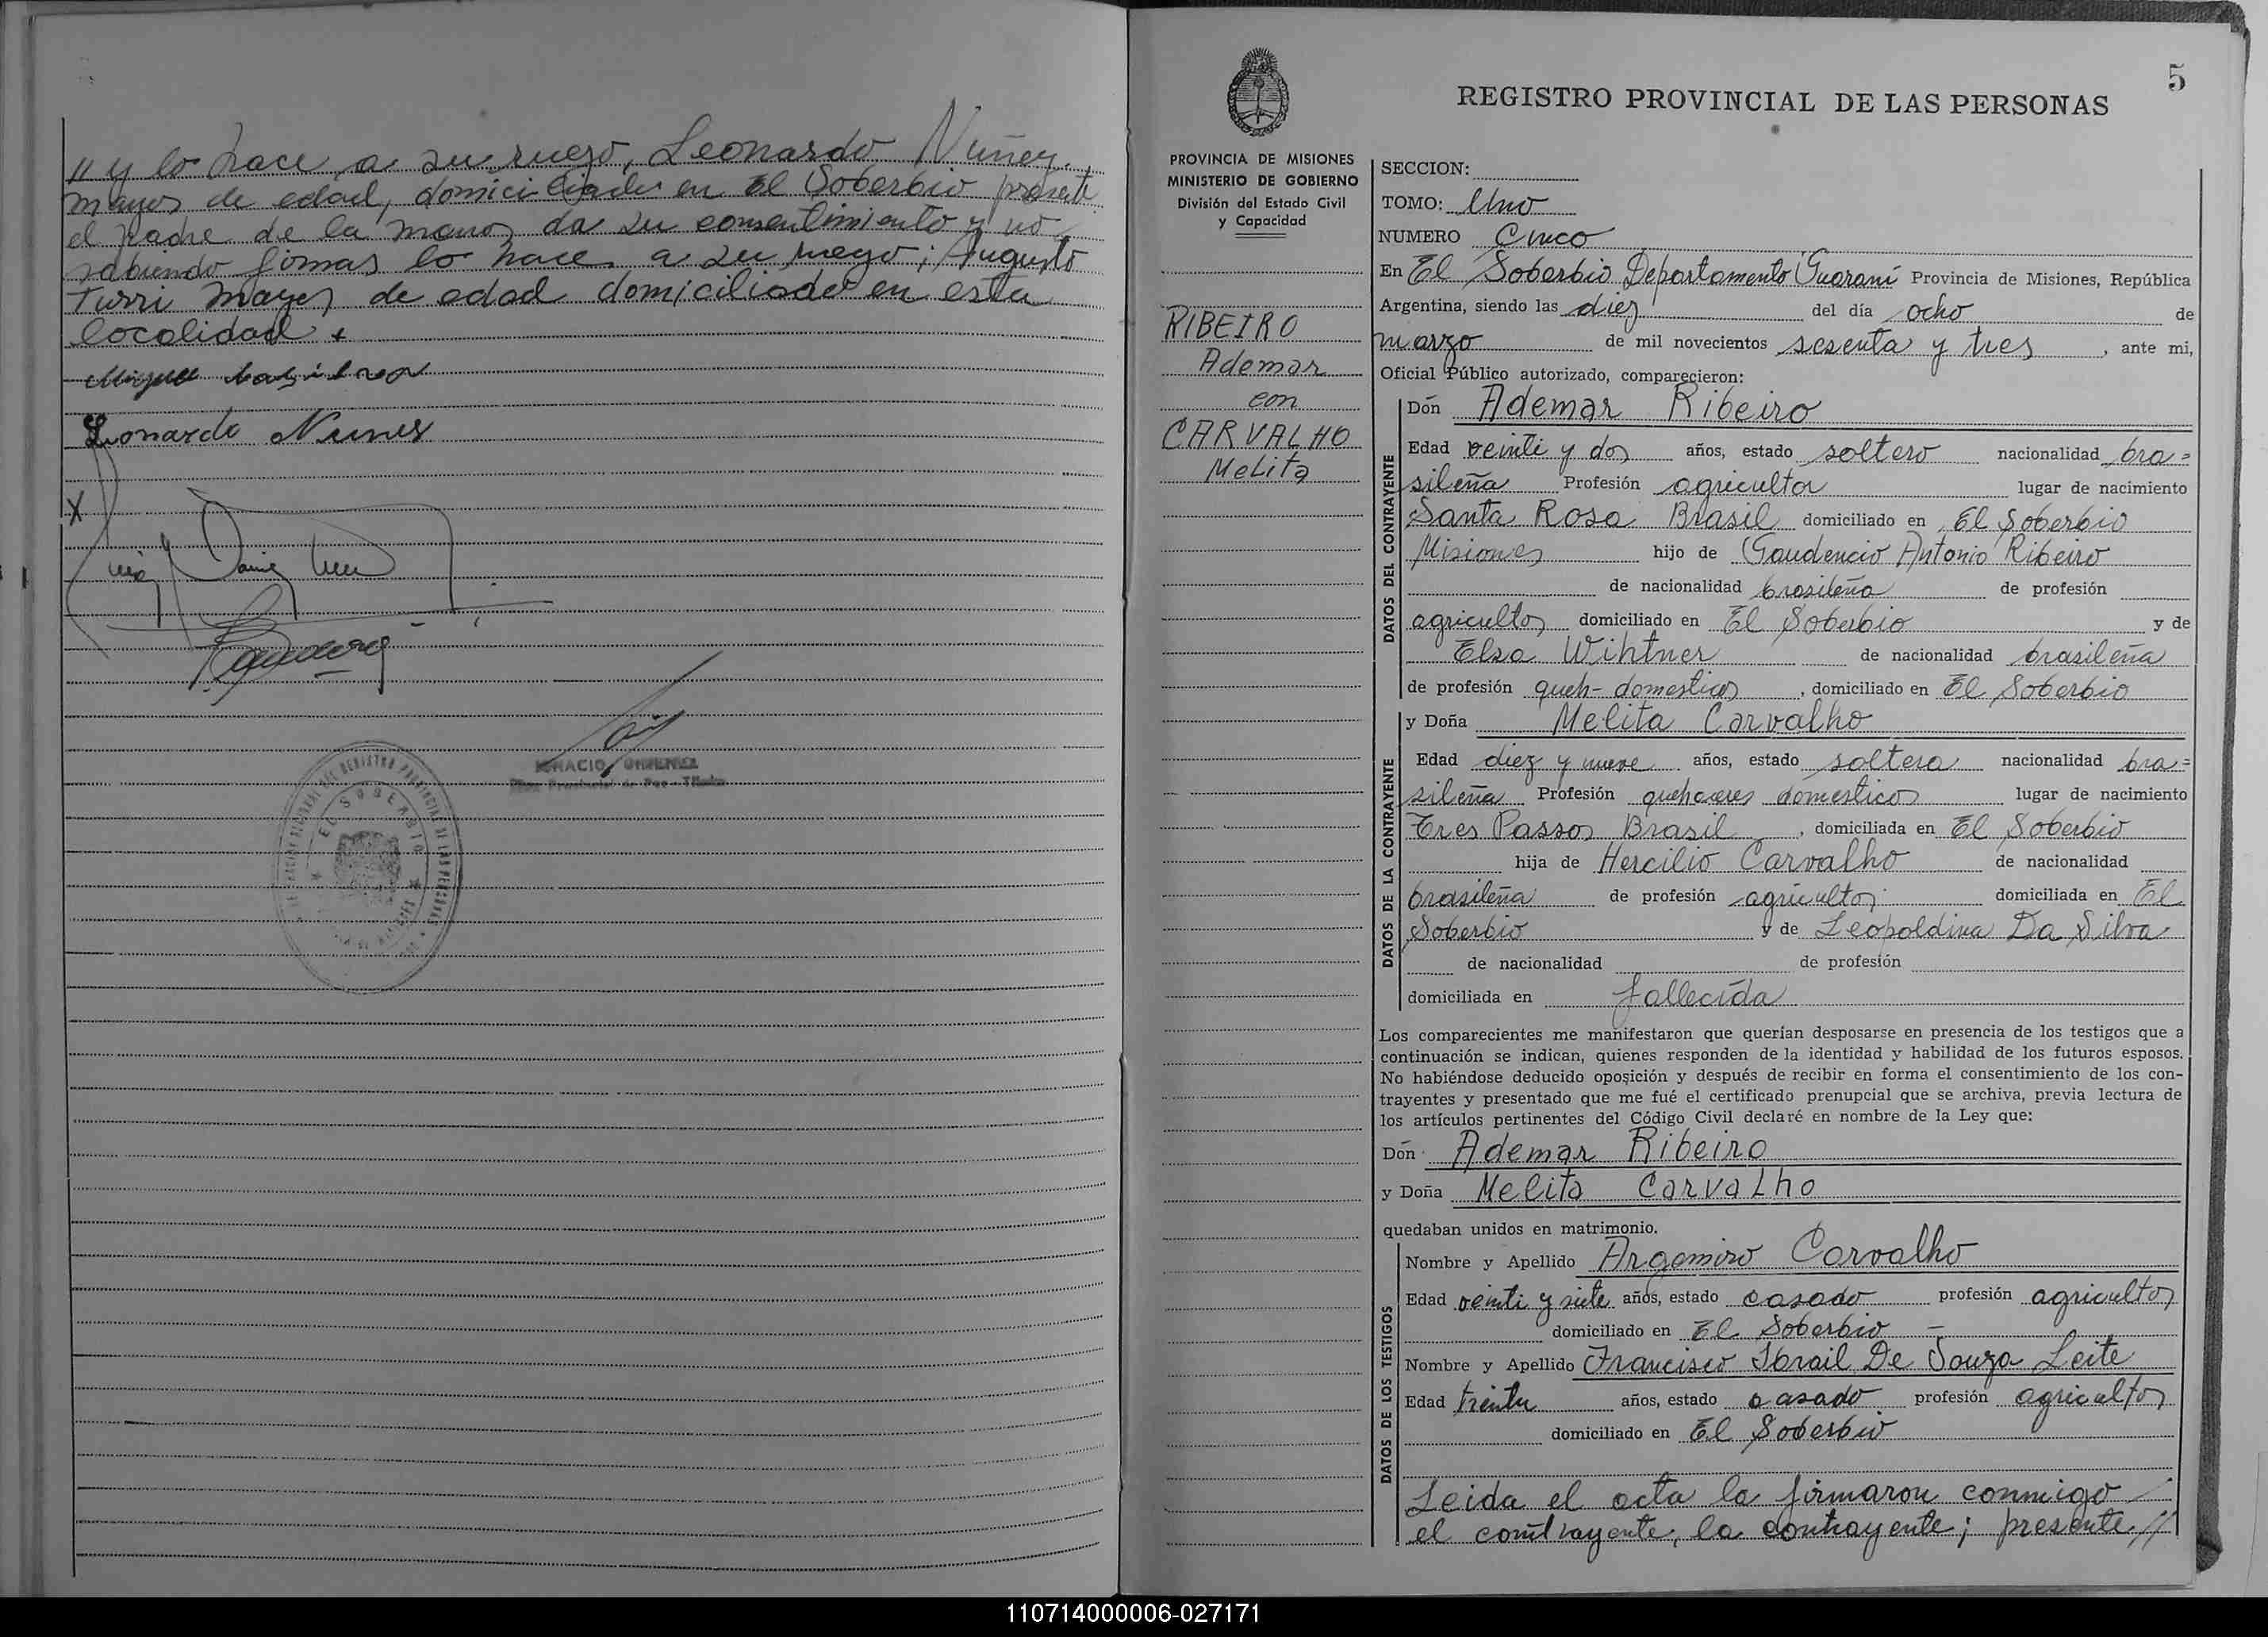 " y lo hace a su ruego, Leonardo Nuñez
mayor de edad, domiciliado en El Soberbio presente
el padre de la menor da su consentimiento y no
sabiendo firmar lo hace a su ruego; Augusto
Turri mayor de edad domiciliado en esta
localidad
Leonardo Nunes
X
IGNACIO GIMENEZ
EL SOBERBIO
5
REGISTRO PROVINCIAL DE LAS PERSONAS
PROVINCIA DE MISIONES
MINISTERIO DE GOBIERNO
División del Estado Civil
y Capacidad
RIBEIRO
Ademar
con
CARVALHO
Melita
SECCION:
TOMO: Uno
NUMERO Cinco
En El Soberbio Departamento Guaraní Provincia de Misiones, República
Argentina, siendo las diez del día ocho de
marzo de mil novecientos sesenta y tres, ante mi,
Oficial Público autorizado, comparecieron:
DATOS DEL CONTRAYENTE
Dón Ademar Ribeiro
Edad veinti y dos años, estado soltero nacionalidad bra=
sileña Profesión agricultor lugar de nacimiento
Santa Rosa Brasil domiciliado en El Soberbio
Misiones hijo de Gaudencio Antonio Ribeiro
de nacionalidad brasileña de profesión
agricultor domiciliado en El Soberbio y de
Elsa Wihtner de nacionalidad brasileña
de profesión queh- domesticos, domiciliado en El Soberbio
DATOS DE LA CONTRAYENTE
y Doña Melita Carvalho
Edad diez y nueve años, estado soltera nacionalidad bra=
sileña Profesión quehaceres domesticos lugar de nacimiento
Tres Passos Brasil, domiciliada en El Soberbio
hija de Hercilio Carvalho de nacionalidad
brasileña de profesión agricultor domiciliada en El
Soberbio y de Leopoldina Da Silva
de nacionalidad de profesión
domiciliada en fallecida
Los comparecientes me manifestaron que querían desposarse en presencia de los testigos que a
continuación se indican, quienes responden de la identidad y habilidad de los futuros esposos.
No habiéndose deducido oposición y después de recibir en forma el consentimiento de los con-
trayentes y presentado que me fué el certificado prenupcial que se archiva, previa lectura de
los artículos pertinentes del Código Civil declaré en nombre de la Ley que:
Dón Ademar Ribeiro
y Doña Melita Carvalho
quedaban unidos en matrimonio.
DATOS DE LOS TESTIGOS
Nombre y Apellido Argemiro Carvalho
Edad veinti y siete años, estado casado profesión agricultor
domiciliado en El Soberbio -
Nombre y Apellido Francisco Ibrail De Souza Leite
Edad treinta años, estado casado profesión agricultor
domiciliado en El Soberbio
Leida el acta la firmaron conmigo
el contrayente, la contrayente; presente //
110714000006-027171